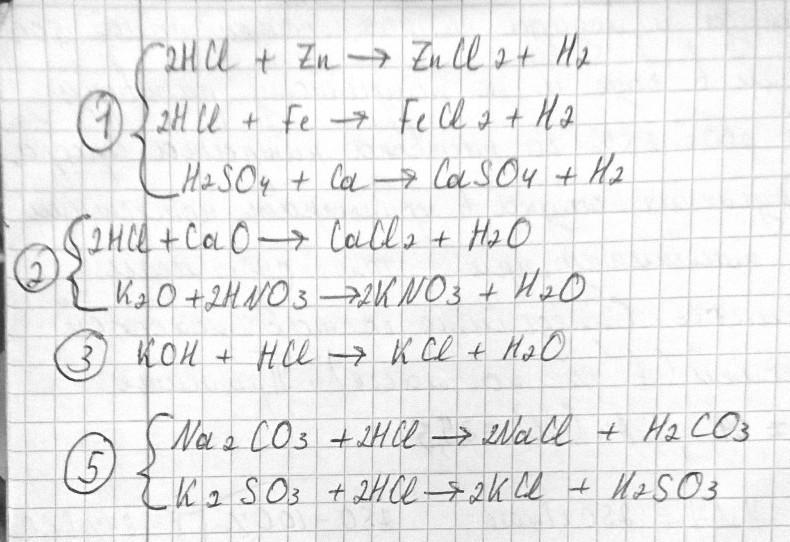 ① 2HCl + Zn → ZnCl2 + H2
2HCl + Fe → FeCl2 + H2
H2SO4 + Ca → CaSO4 + H2
② 2HCl + CaO → CaCl2 + H2O
K2O + 2HNO3 → 2KNO3 + H2O
③ KOH + HCl → KCl + H2O
⑤ Na2CO3 + 2HCl → 2NaCl + H2CO3
K2SO3 + 2HCl → 2KCl + H2SO3